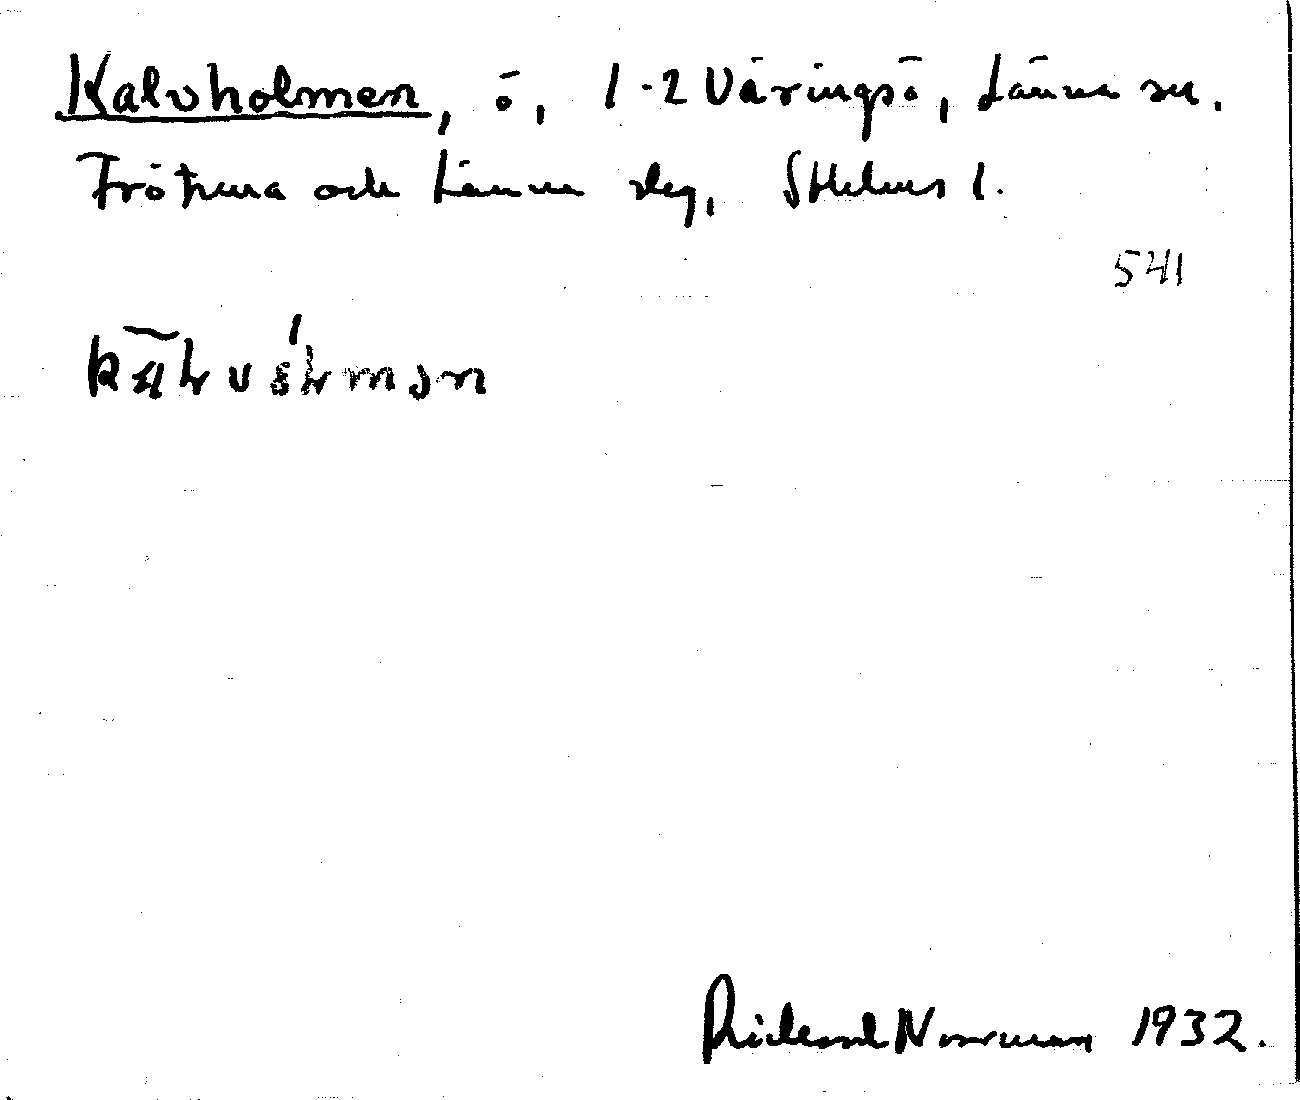 Kalvholmen, ö, 1-2 Väringsö, Länna sn.
Frötuna och Länna slg, Sthlms l.
541
Rickard Norrman 1932.